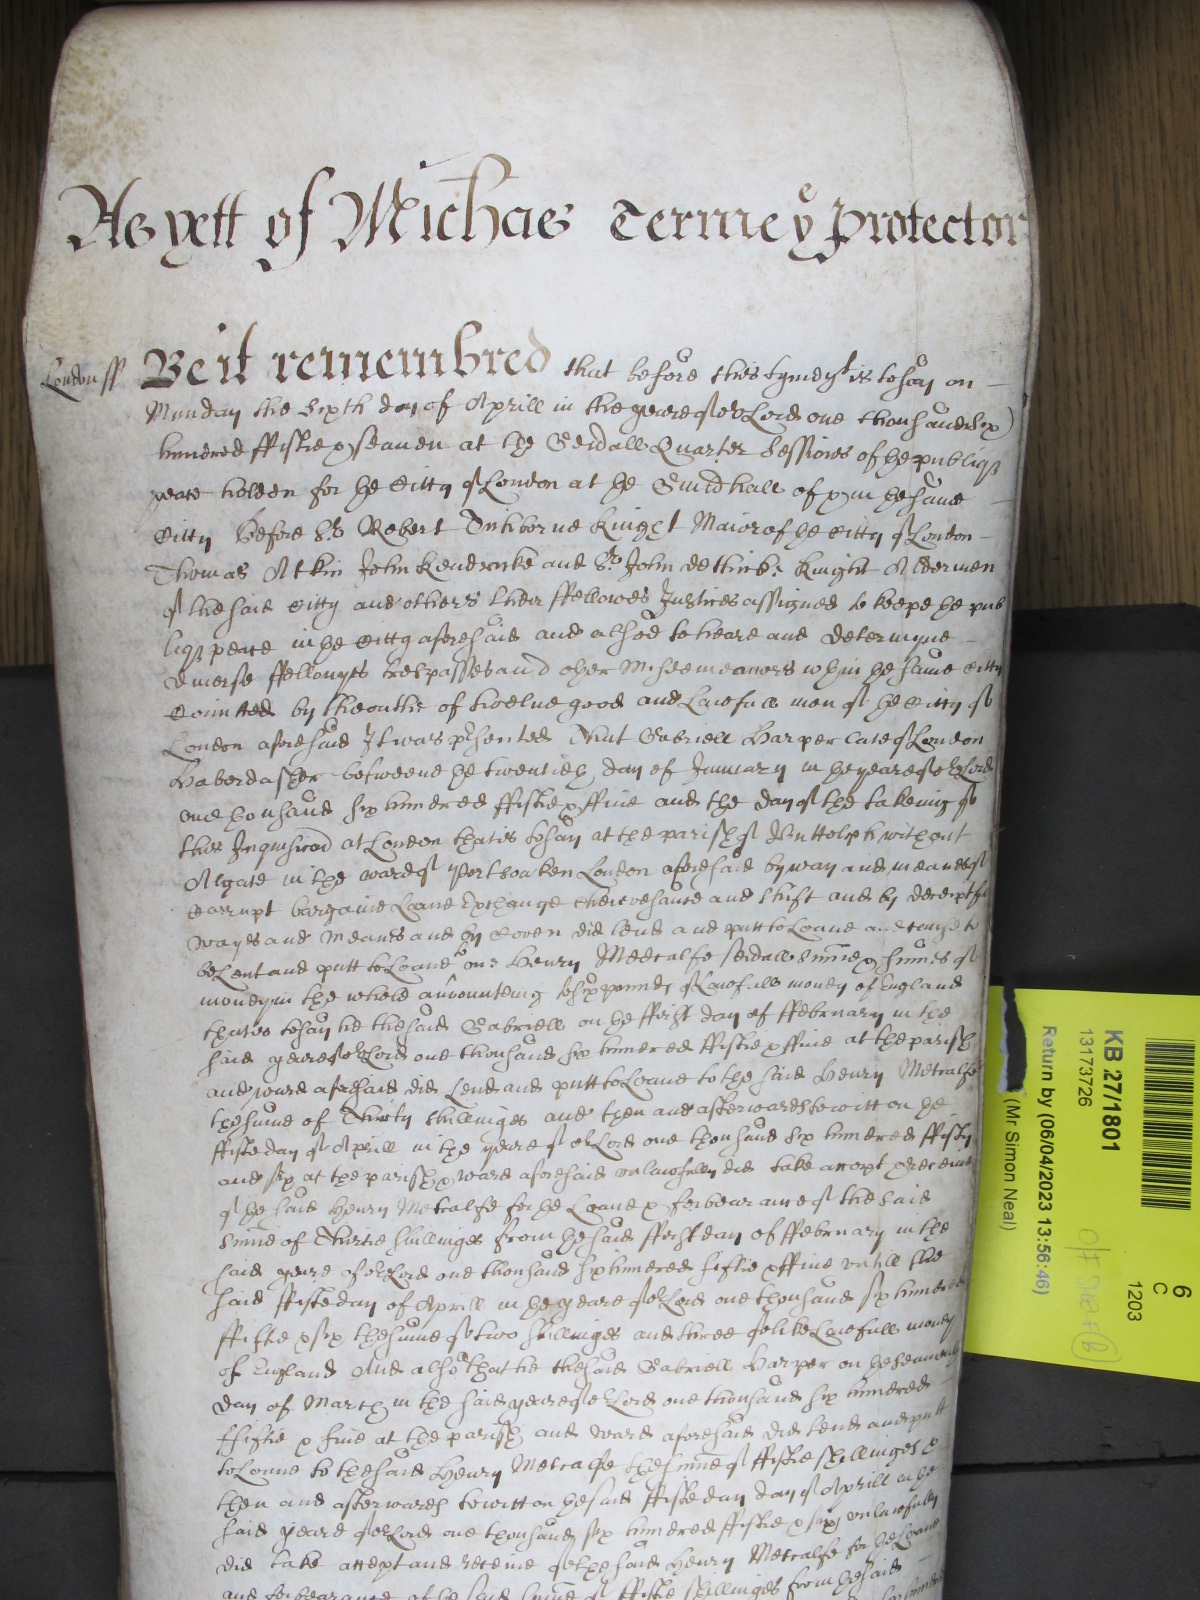 As yett of Michas Terme ye Protector
London ss Be it remembred that before this tyme yt is to say on
Munday the Sixth day of Aprill in the yeare of or Lord one thousand Six
hundred ffiftie & seaven at the Gen'all Quarter Sessions of the publiqs
peace holden for the Citty of London at the Guildhall of & in the same
Citty before Sr Robert Tichborne Knight Maior of the Citty of London
Thomas Atkin John Kendricke and Sr John Dethicke Knight Aldermen
of the said Citty and others their ffellowes Justices assigned to keepe the pub
liqs peace in the Citty aforesaid and alsoe to heare and determyne
diverse ffellonyes trespasses and other Misdemeanors wthin the same Citty
Comitted by the oathe of twelve good and Lawfull men of the Citty of
London aforesaid It was p'sented That Gabriell Harper late of London
Haberdasher betweene the twentieth day of January in the yeare of or Lord
one thousand six hundred ffiftie & ffive and the day of the takeing of
this Inquisicon at London that is to say at the parish of Buttolph without
Algate in the ward of Portsoaken London aforesaid by way and meanes of
Corrupt bargaine Loane Exchange chevesance and shift and by deceiptfull
wayes and meanes and by Coven did lend and putt to Loane and cause to
be Lent and putt to Loane to one Henry Meetcalfe sev'all summe & summes of
money in the whole amounteing to six pounds of Lawfull money of England
that is to say he the said Gabriell on the ffirst day of ffebruary in the
said yeare of or Lord one thousand six hundred ffiftie & ffive at the parish
and ward aforesaid did Lend and putt to Loane to the said Henry Metcalfe
the sume of Thirty shillinges and then and afterwards to witt on the
ffifte day of Aprill in the yeare of or Lord one thousand six hundred ffifty
and six at the parish & ward aforesaid unlawfully did take accept & receive
of the said Henry Metcalfe for the Loane & forbearance of the said
Sume of Thirtie shillinges from the said ffirst day of ffebruary in the
said yeare of or Lord one thousand six hundred fiftie & ffive untill the
said ffifte day of Aprill in the yeare of or Lord one thousand six hundred
ffiftie & six the sume of two shillinges and three of like Lawfull money
of England And alsoe that he the said Gabriell Harper on the seaventh
day of March in the said yeare of or Lord one thousand six hundred
ffiftie & five at the parish and ward aforesaid did lend and putt
to Loane to the said Henry Metcalfe the sume of ffiftie shillinges &
then and afterwards to witt on the said ffifte day day of Aprill in the
said yeare of or Lord one thousand six hundred ffiftie & six unlawfully
did take accept and receive of the said Henry Metcalfe for the Loane
and forbearance of the said sume of ffiftie shillinges from the said
KB 27/1801
13173726
Return by (06/04/2023 13:56:46)
(Mr Simon Neal)
6
C
1203